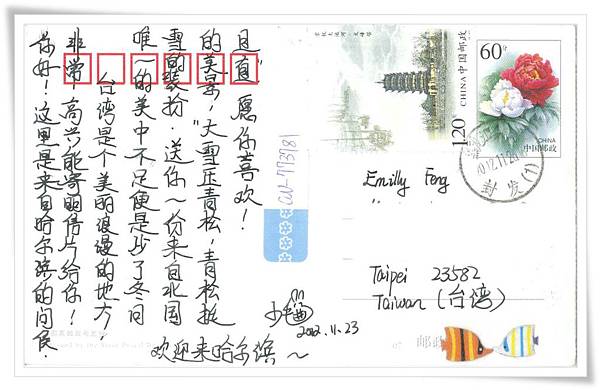 你好！这里是来自哈尔滨的问候.
非常高兴能寄明信片给你！
台湾是个美丽浪漫的地方,
唯一的美中不足便是少了冬间
雪的装扮.送你一份来自北国
的美景,"大雪压青松,青松挺
且直"愿你喜欢！
2012.11.23
欢迎来哈尔滨~
CN-773181
1.20
中国邮政
CHINA
60分
CHINA
中国邮政
封发(1)
Emilly Feng
Taipei 23582
Taiwan (台湾)